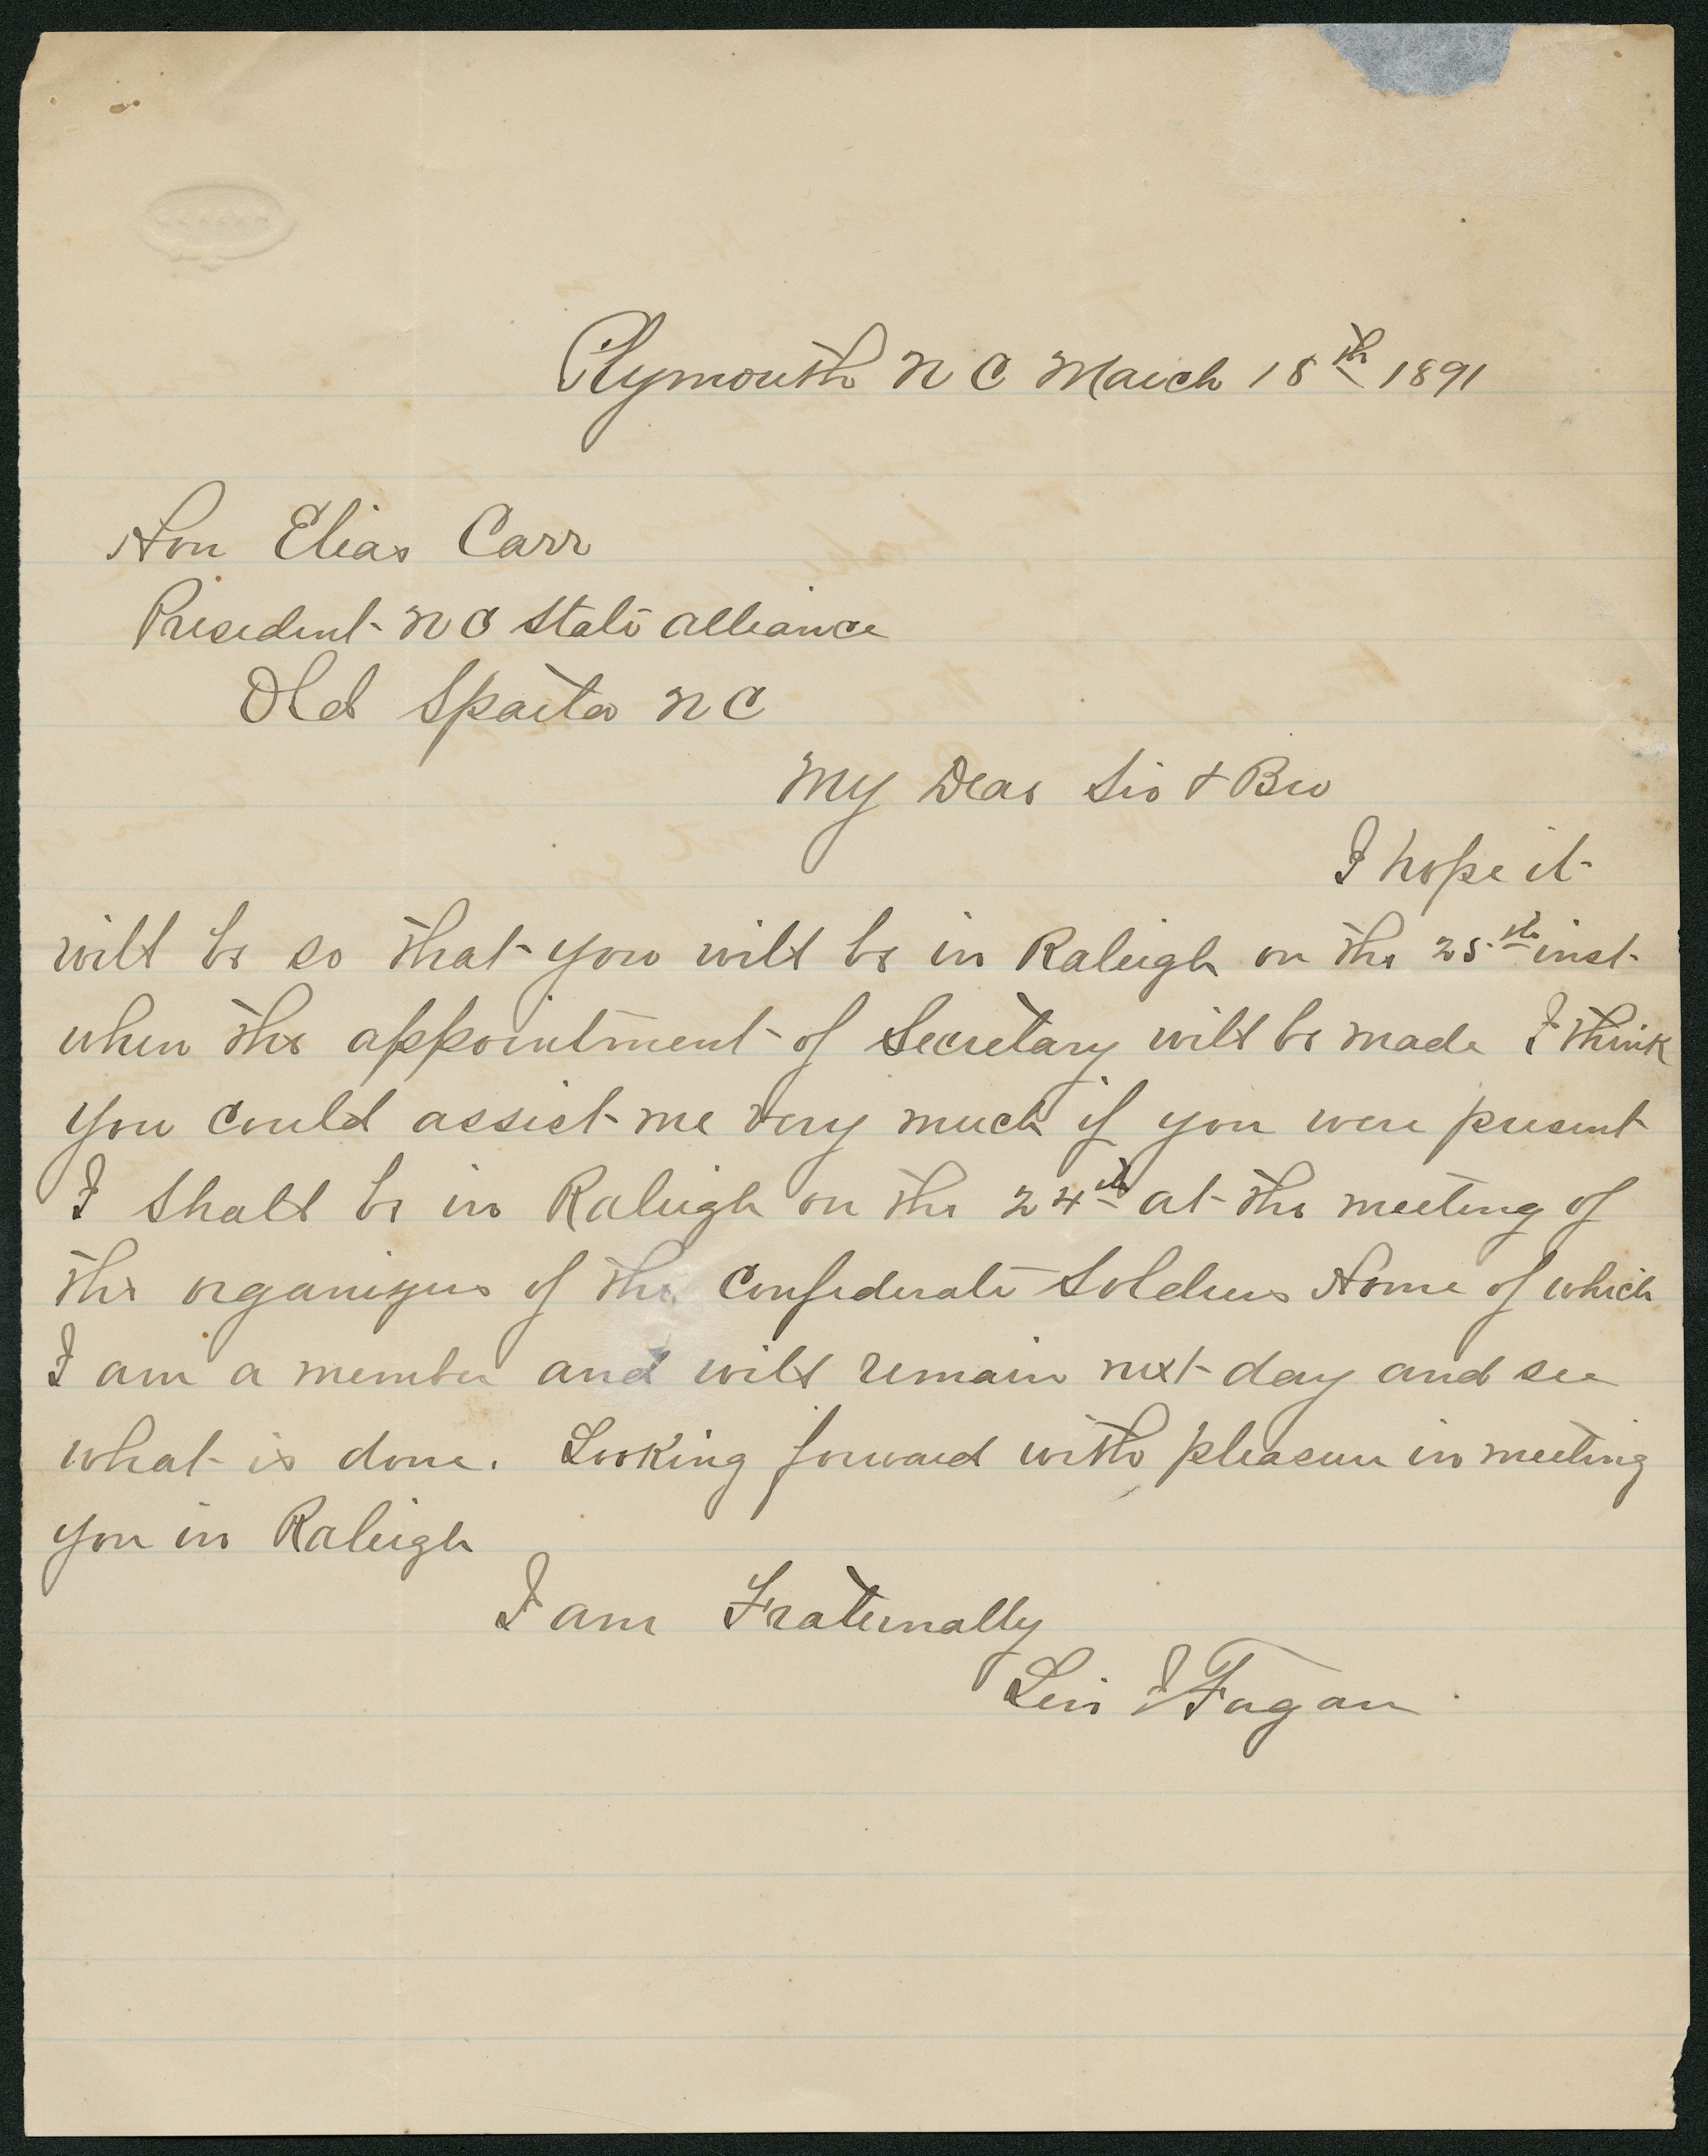 Plymouth N C March 18th 1891
Hon Elias Carr
President N C State Alliance
Old Sparta N C
My Dear Sir & Bro
I hope it
will be so that you will be in Raleigh on the 25th inst
when the appointment of Secretary will be made I think
you could assist me very much if you were present
I shall be in Raleigh on the 24th at the meeting of
the organizers of the Confederate Soldiers Home of which
I am a member and will remain next day and see
what is done. Looking forward with pleasure in meeting
you in Raleigh
I am Fraternally
Levi J Fagan